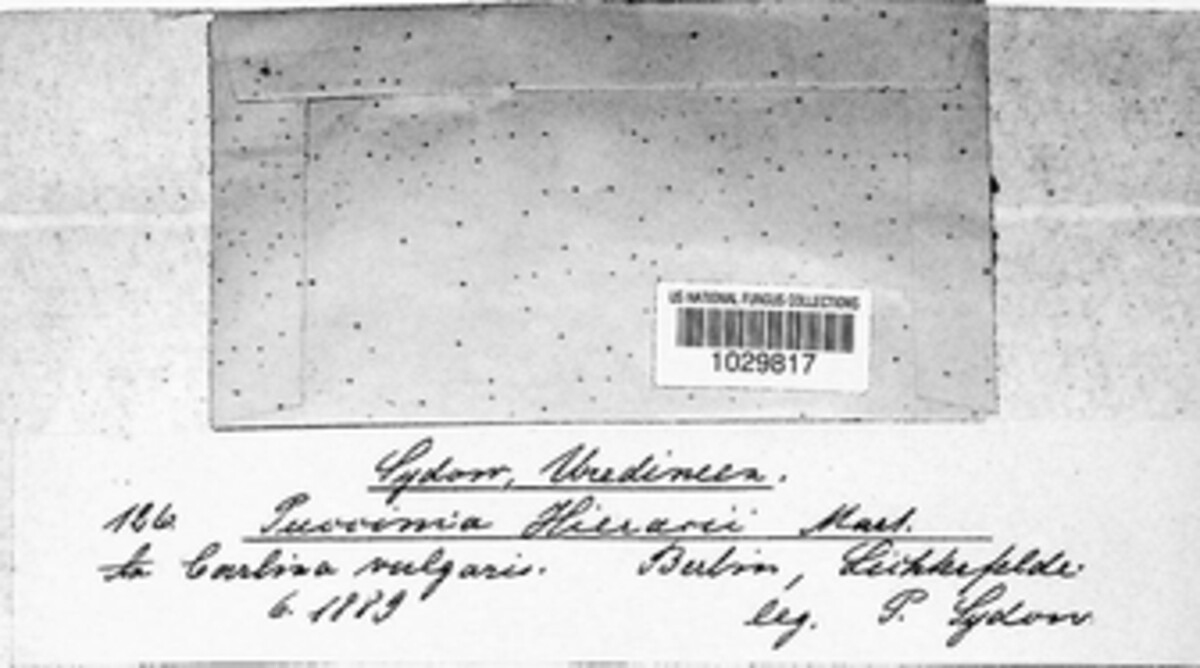 US NATIONAL FUNGUS COLLECTIONS
1029817
Sydow, Uredineen.
126. Puccinia Hieracii Mart.
In Carlina vulgaris. Berlin, Lichterfelde.
6. 1889 leg. P. Sydow